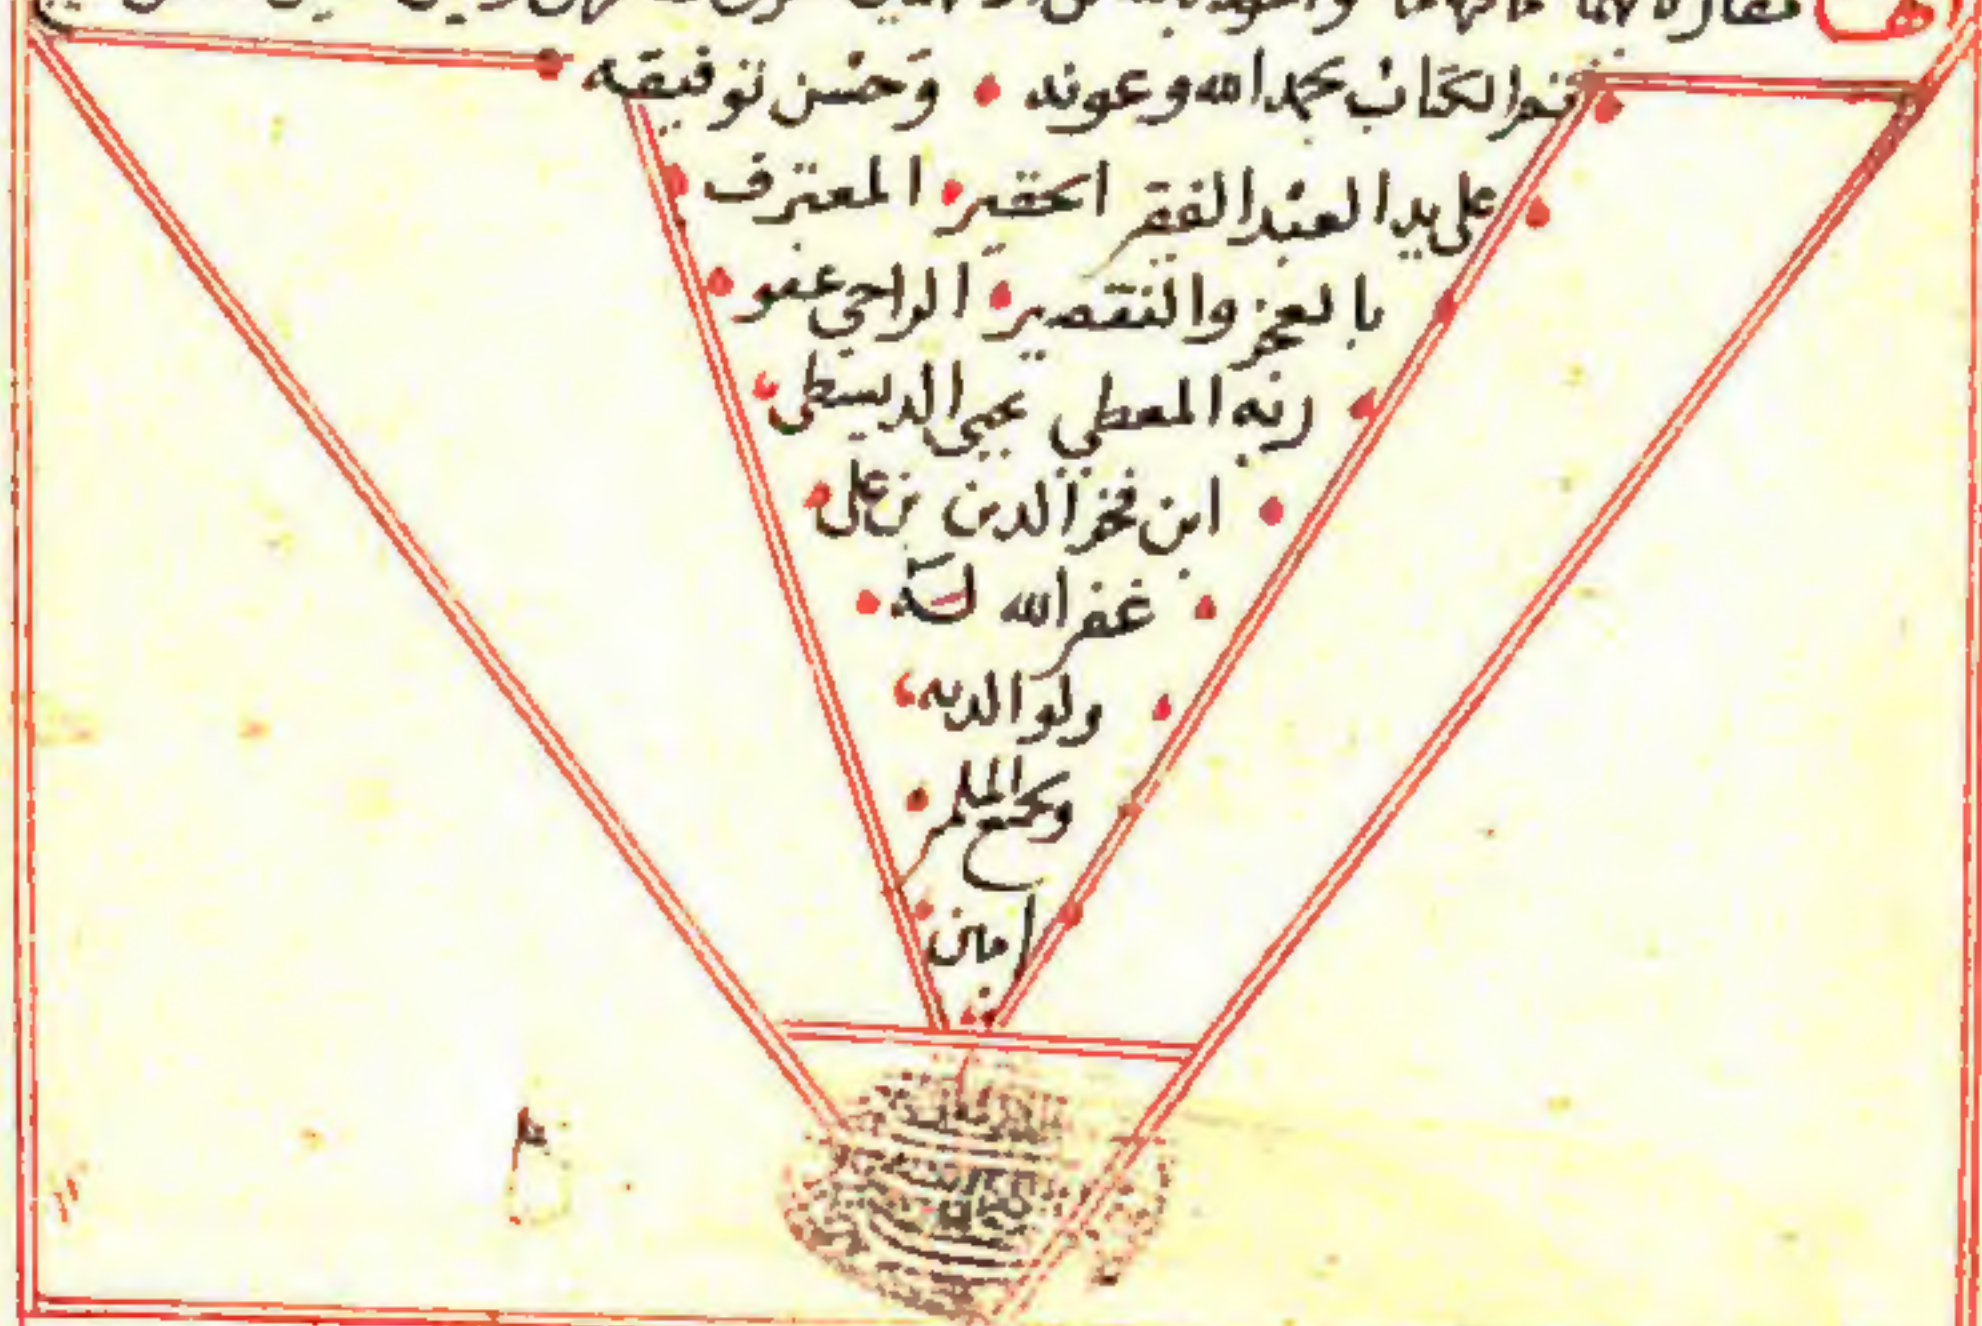 تم الكتاب بحمد الله وعونه وحسن توفيقه
على يد العبد الفقير الحقير المعترف
بالعجز والتقصير الراجي عفو
ربه المعطي يحيى الديسطي
ابن فخر الدين بن علي
غفر الله له
ولوالديه
ولجميع المسلمين
امين